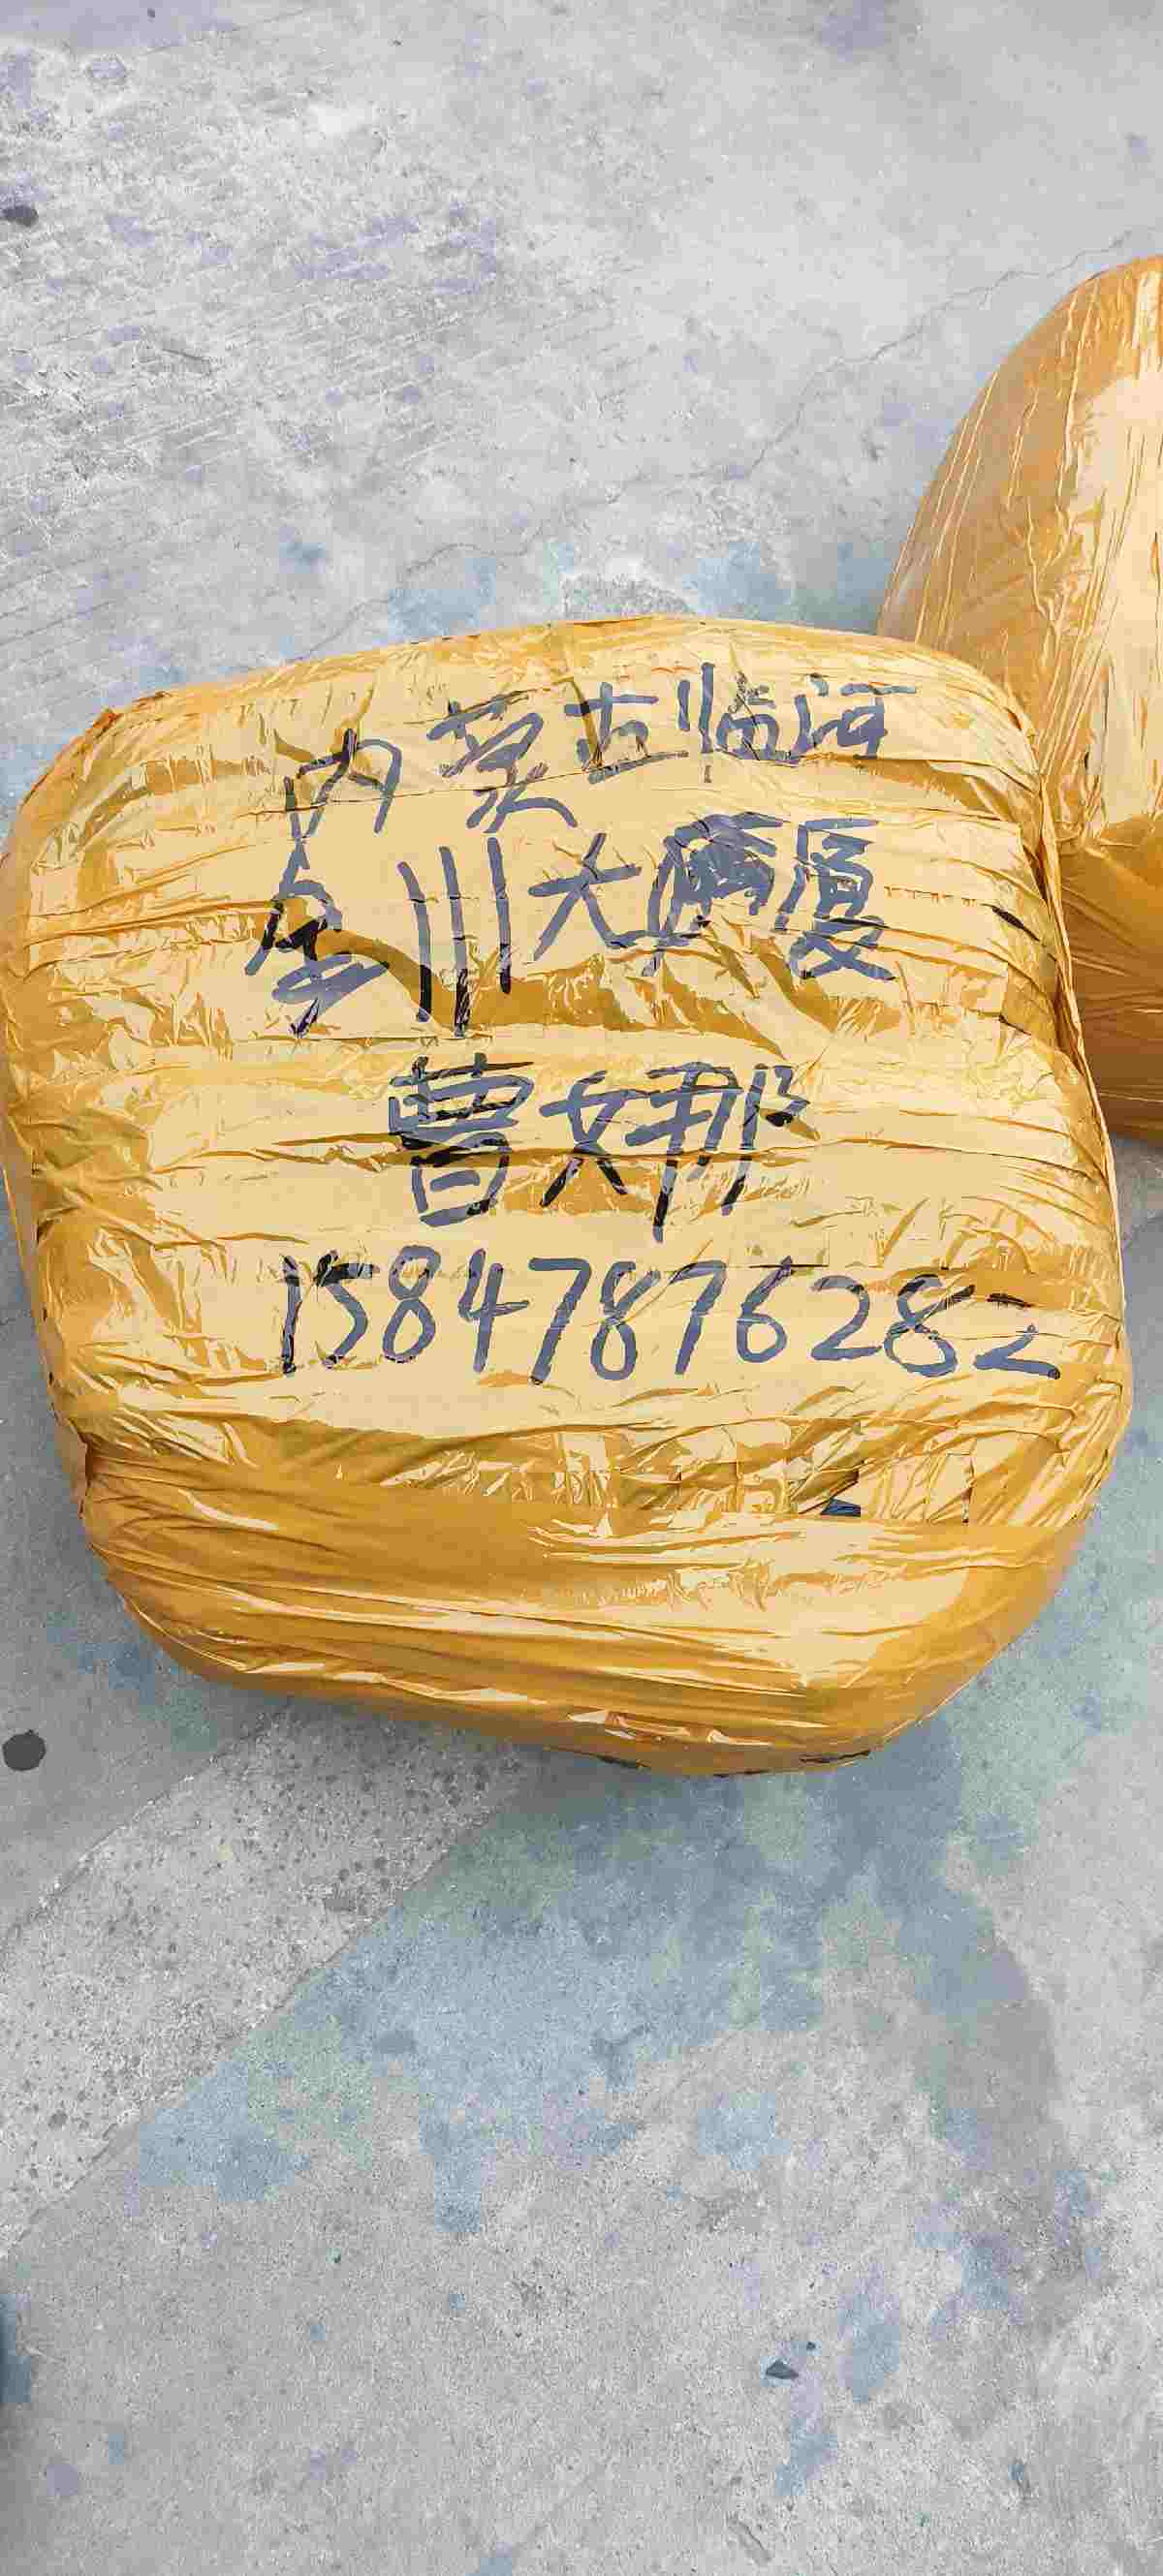 内蒙古临河
金川大厦
曹娜
15847876282